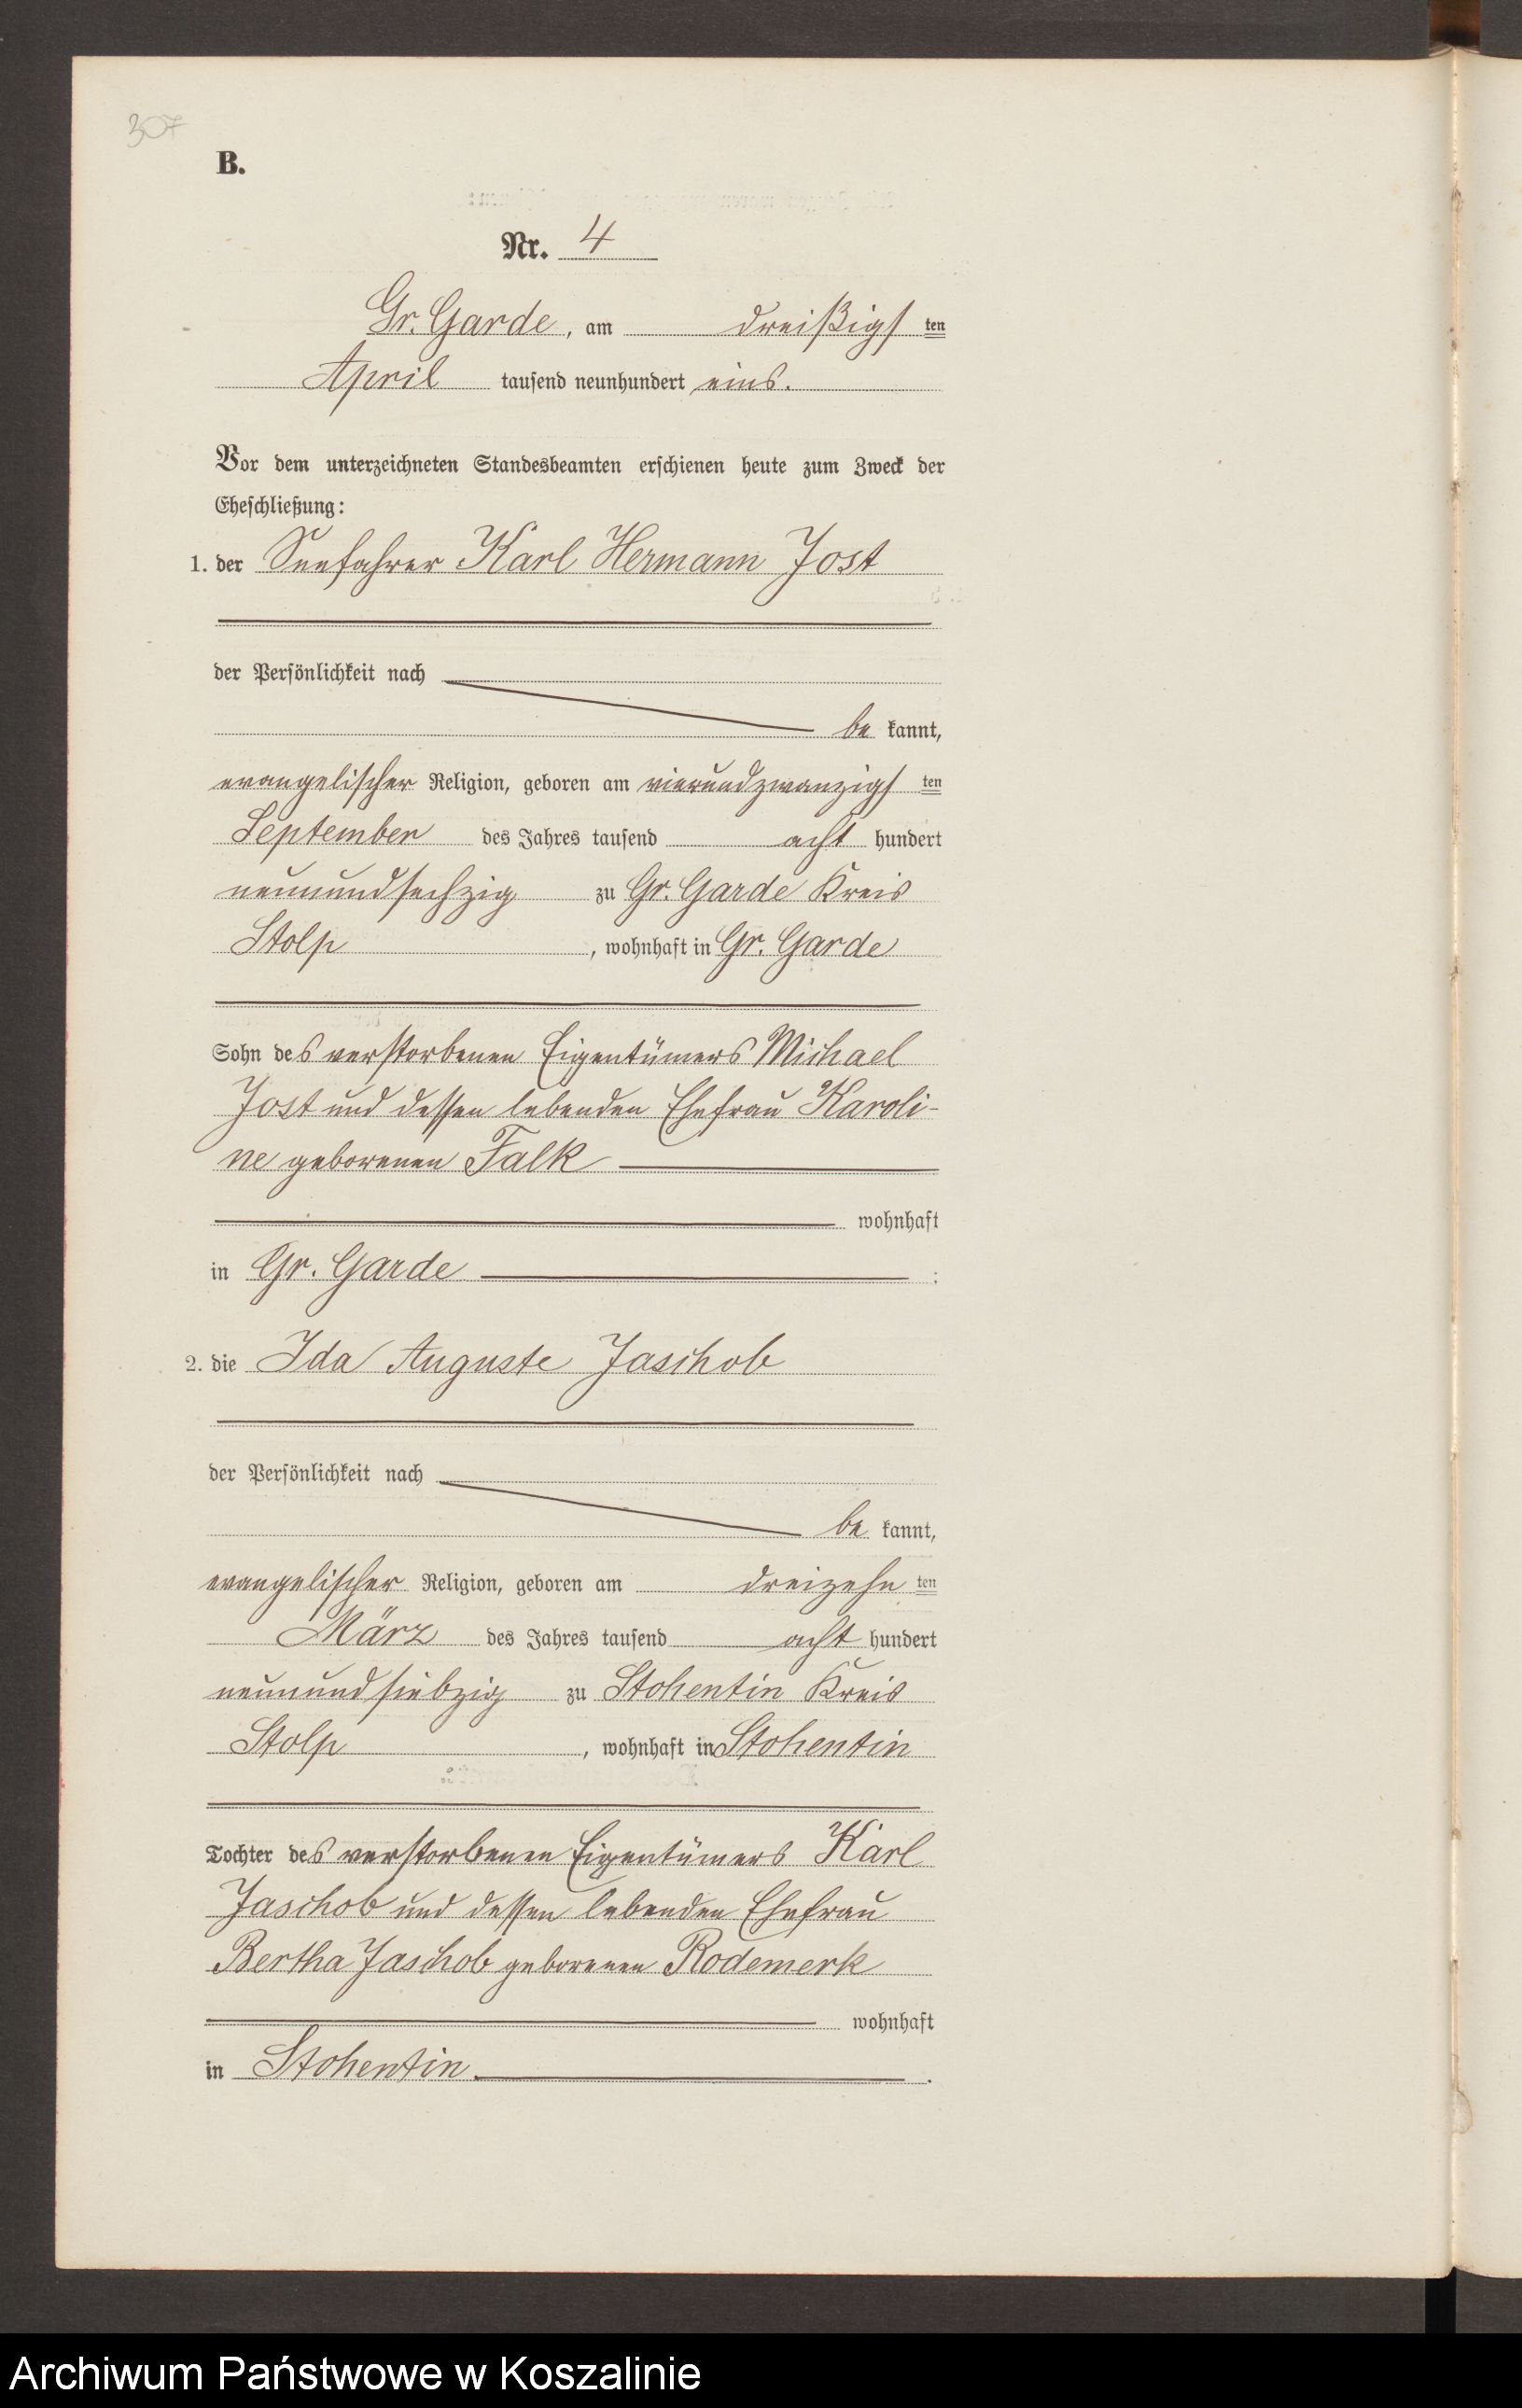 307
B.
Nr. 4
Gr. Garde, am dreißigsten
April tausend neunhundert eins.
Vor dem unterzeichneten Standesbeamten erschienen heute zum Zweck der
Eheschließung:
1. der Seefahrer Karl Hermann Jost
der Persönlichkeit nach
be kannt,
evangelischer Religion, geboren am vierundzwanzigsten
September des Jahres tausend acht hundert
neunundsechzig zu Gr. Garde Kreis
Stolp, wohnhaft in Gr. Garde
Sohn des verstorbenen Eigentümers Michael
Jost und dessen lebenden Ehefrau Karoli-
ne geborenen Falk
wohnhaft
in Gr. Garde :
2. die Ida Auguste Jaschob
der Persönlichkeit nach
be kannt,
evangelischer Religion, geboren am dreizehnten
März des Jahres tausend acht hundert
neunundsiebzig zu Stohentin Kreis
Stolp, wohnhaft in Stohentin
Tochter des verstorbenen Eigentümers Karl
Jaschob und dessen lebenden Ehefrau
Bertha Jaschob geborenen Rodemerk
wohnhaft
in Stohentin.
Archiwum Państwowe w Koszalinie